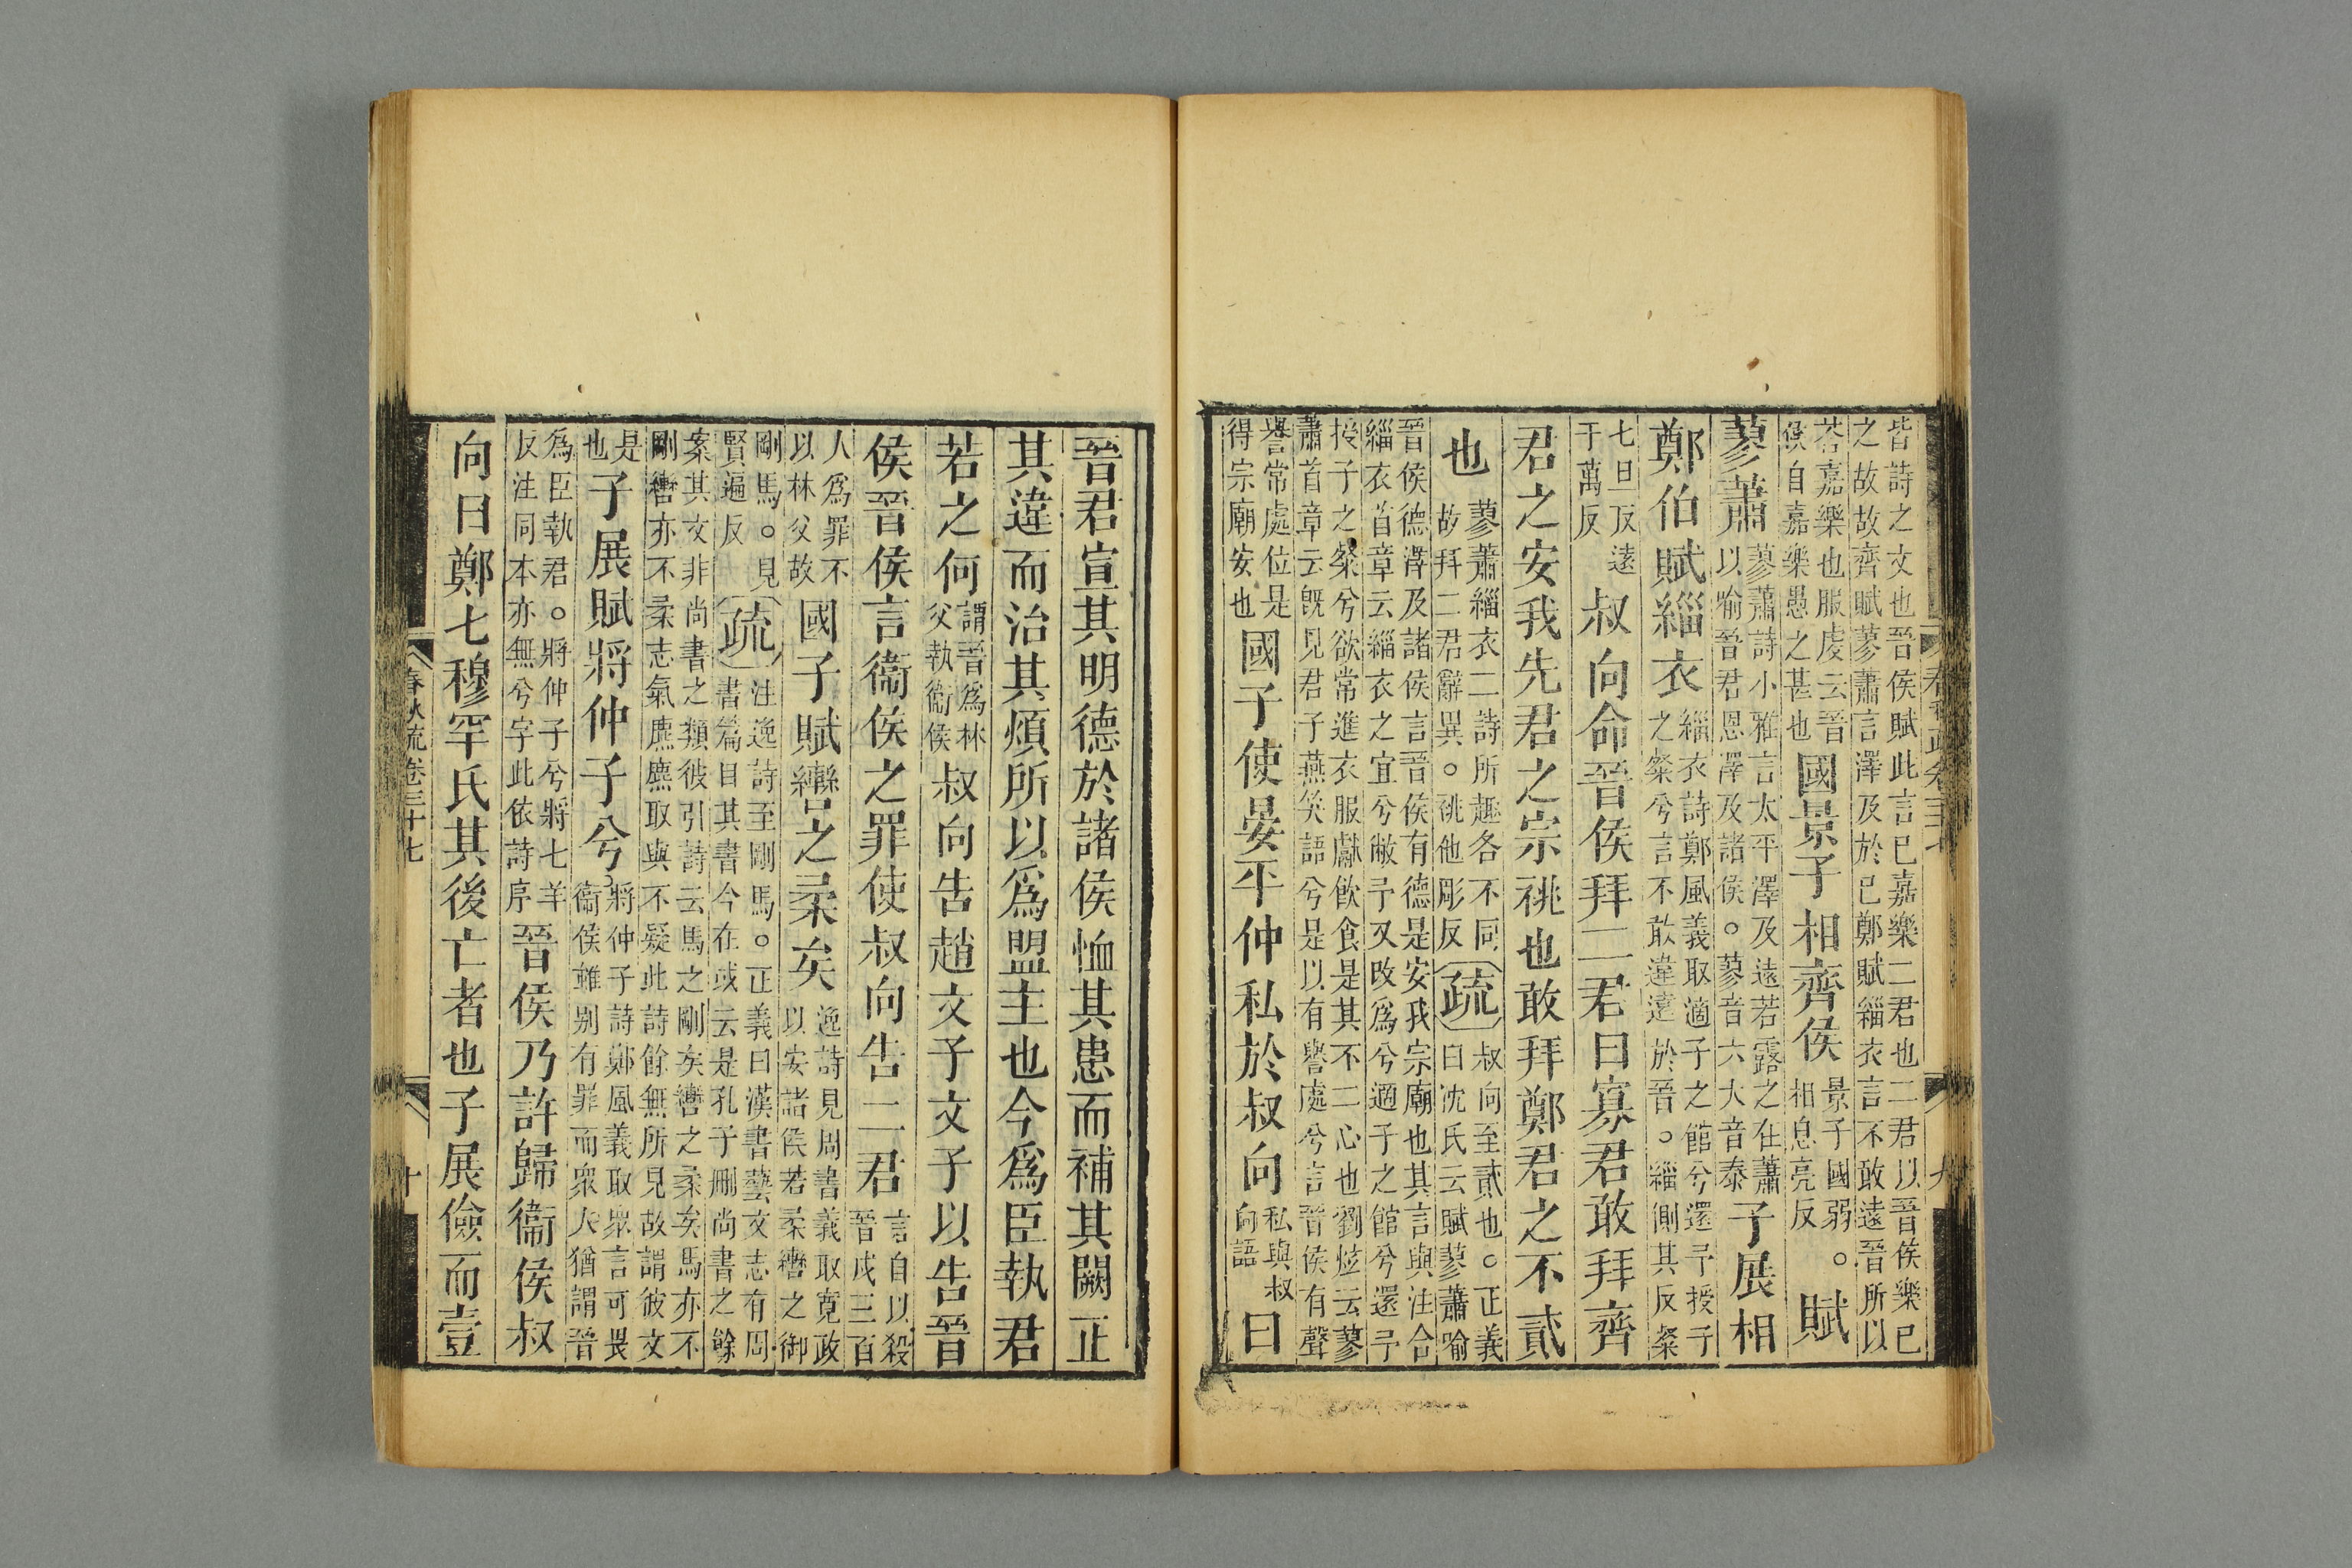 皆詩之文也晉侯賦此言已嘉樂二君也二君以晉侯樂已
之故故齊賦蓼蕭言澤及於已鄭賦緇衣言不敢遠晉所以
荅嘉樂也服虔云晉
侯自嘉樂愚之甚也
國景子相齊侯
景子國弱。
相息亮反
賦
蓼蕭
蓼蕭詩小雅言太平澤及遠若露之在蕭
以喻晉君恩澤及諸侯。蓼音六大音泰
子展相
鄭伯賦緇衣
緇衣詩鄭風義取適子之館兮還予授子
之粲兮言不敢違遠於晉。緇側其反粲
七旦反遠
于萬反
叔向命晉侯拜二君曰寡君敢拜齊
君之安我先君之宗祧也敢拜鄭君之不貳
也
蓼蕭緇衣二詩所趣各不同
故拜二君辭異。祧他彫反
疏
叔向至貳也。正義
曰沈氏云賦蓼蕭喻
晉侯德澤及諸侯言晉侯有德是安我宗廟也其言與注合
緇衣首章云緇衣之宜兮敝予又改爲兮適子之館兮還予
授子之粲兮欲常進衣服獻飲食是其不二心也劉炫云蓼
蕭首章云旣見君子燕笑語兮是以有譽處兮言晉侯有聲
譽常處位是
得宗廟安也
國子使晏平仲私於叔向
私與叔
向語
曰
晉君宣其明德於諸侯恤其患而補其闕正
其違而治其煩所以爲盟主也今爲臣執君
若之何
謂晉爲林
父執衞侯
叔向告趙文子文子以告晉
侯晉侯言衞侯之罪使叔向告二君
言自以殺
晉戍三百
人爲罪不
以林父故
國子賦轡之柔矣
逸詩見周書義取寬政
以安諸侯若柔轡之御
剛馬。見
賢遍反
疏
注逸詩至剛馬。正義曰漢書藝文志有周
書篇目其書今在或云是孔子刪尚書之餘
案其文非尚書之類彼引詩云馬之剛矣轡之柔矣馬亦不
剛轡亦不柔志氣麃麃取與不疑此詩餘無所見故謂彼文
是
也
子展賦將仲子兮
將仲子詩鄭風義取衆言可畏
衞侯雖别有罪而衆人猶謂晉
爲臣執君。將仲子兮將七羊
反注同本亦無兮字此依詩序
晉侯乃許歸衞侯叔
向曰鄭七穆罕氏其後亡者也子展儉而壹
春秋疏卷三十七
十